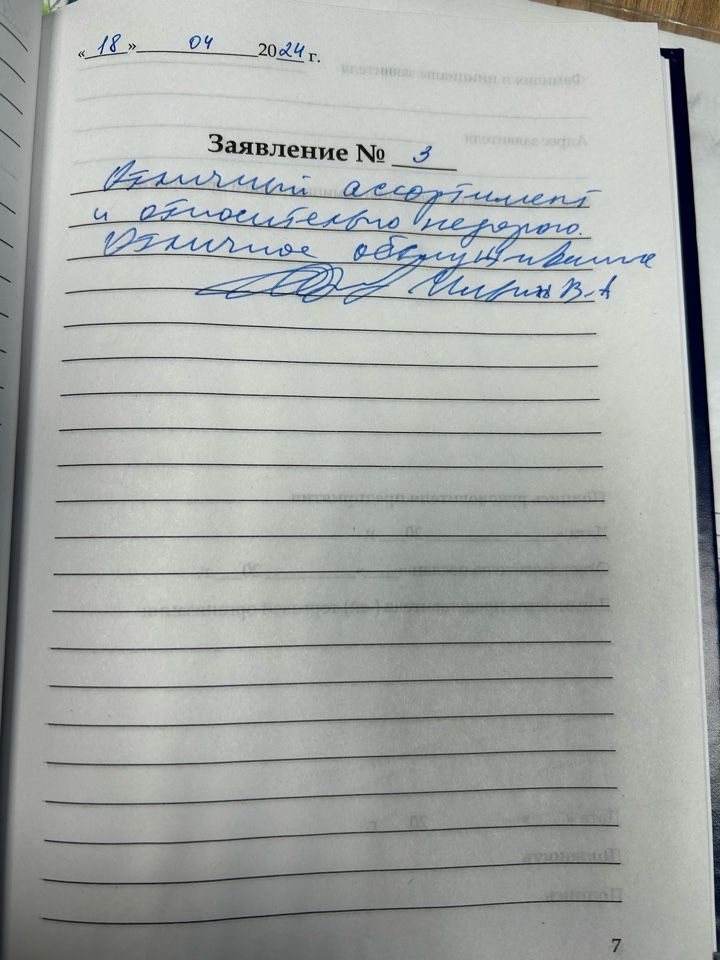 « 18 » 04 2024 г.
Заявление № 3
Отличный ассортимент
и относительно недорого.
Отличное обслуживание
В.А
7